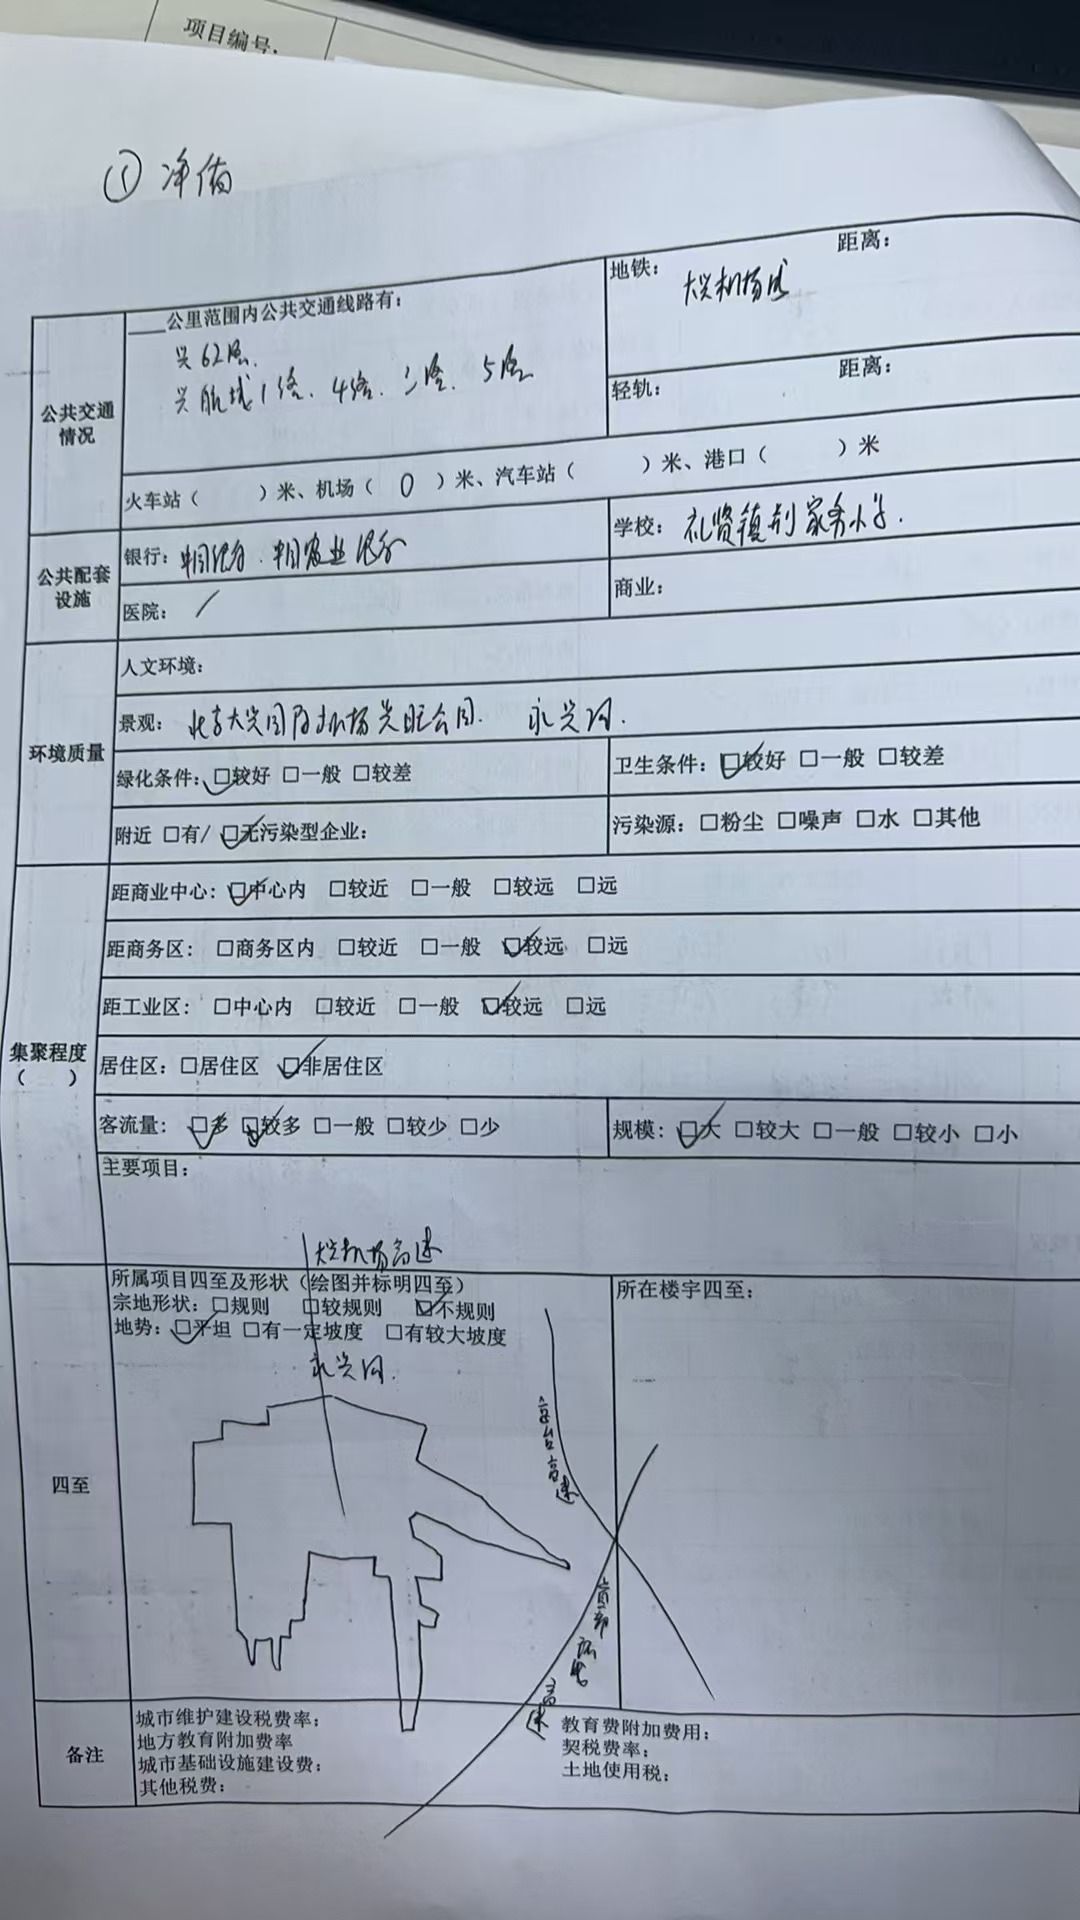 项目编号:
① 净值
公里范围内公共交通线路有:
兴62路.
兴航城1路、4路、2路、5路
地铁: 大兴机场线 距离:
轻轨: 距离:
公共交通
情况
火车站（ ）米、机场（ 0 ）米、汽车站（ ）米、港口（ ）米
公共配套
设施
银行: 中国银行. 中国农业银行
学校: 礼贤镇荆家务小学.
医院: /
商业:
环境质量
人文环境:
景观: 北京大兴国际机场兴旺公园. 永兴河.
绿化条件: ☑较好 □一般 □较差
卫生条件: ☑较好 □一般 □较差
附近 □有/ ☑无污染型企业:
污染源: □粉尘 □噪声 □水 □其他
集聚程度
（ ）
距商业中心: ☑中心内 □较近 □一般 □较远 □远
距商务区: □商务区内 □较近 □一般 ☑较远 □远
距工业区: □中心内 □较近 □一般 ☑较远 □远
居住区: □居住区 ☑非居住区
客流量: ☑多 ☑较多 □一般 □较少 □少
规模: ☑大 □较大 □一般 □较小 □小
主要项目:
大兴机场高速
四至
所属项目四至及形状（绘图并标明四至）
宗地形状: □规则 □较规则 ☑不规则
地势: ☑平坦 □有一定坡度 □有较大坡度
永兴河.
京台高速
首都环线高速
所在楼宇四至:
备注
城市维护建设税费率:
地方教育附加费率
城市基础设施建设费:
其他税费:
教育费附加费用:
契税费率:
土地使用税: